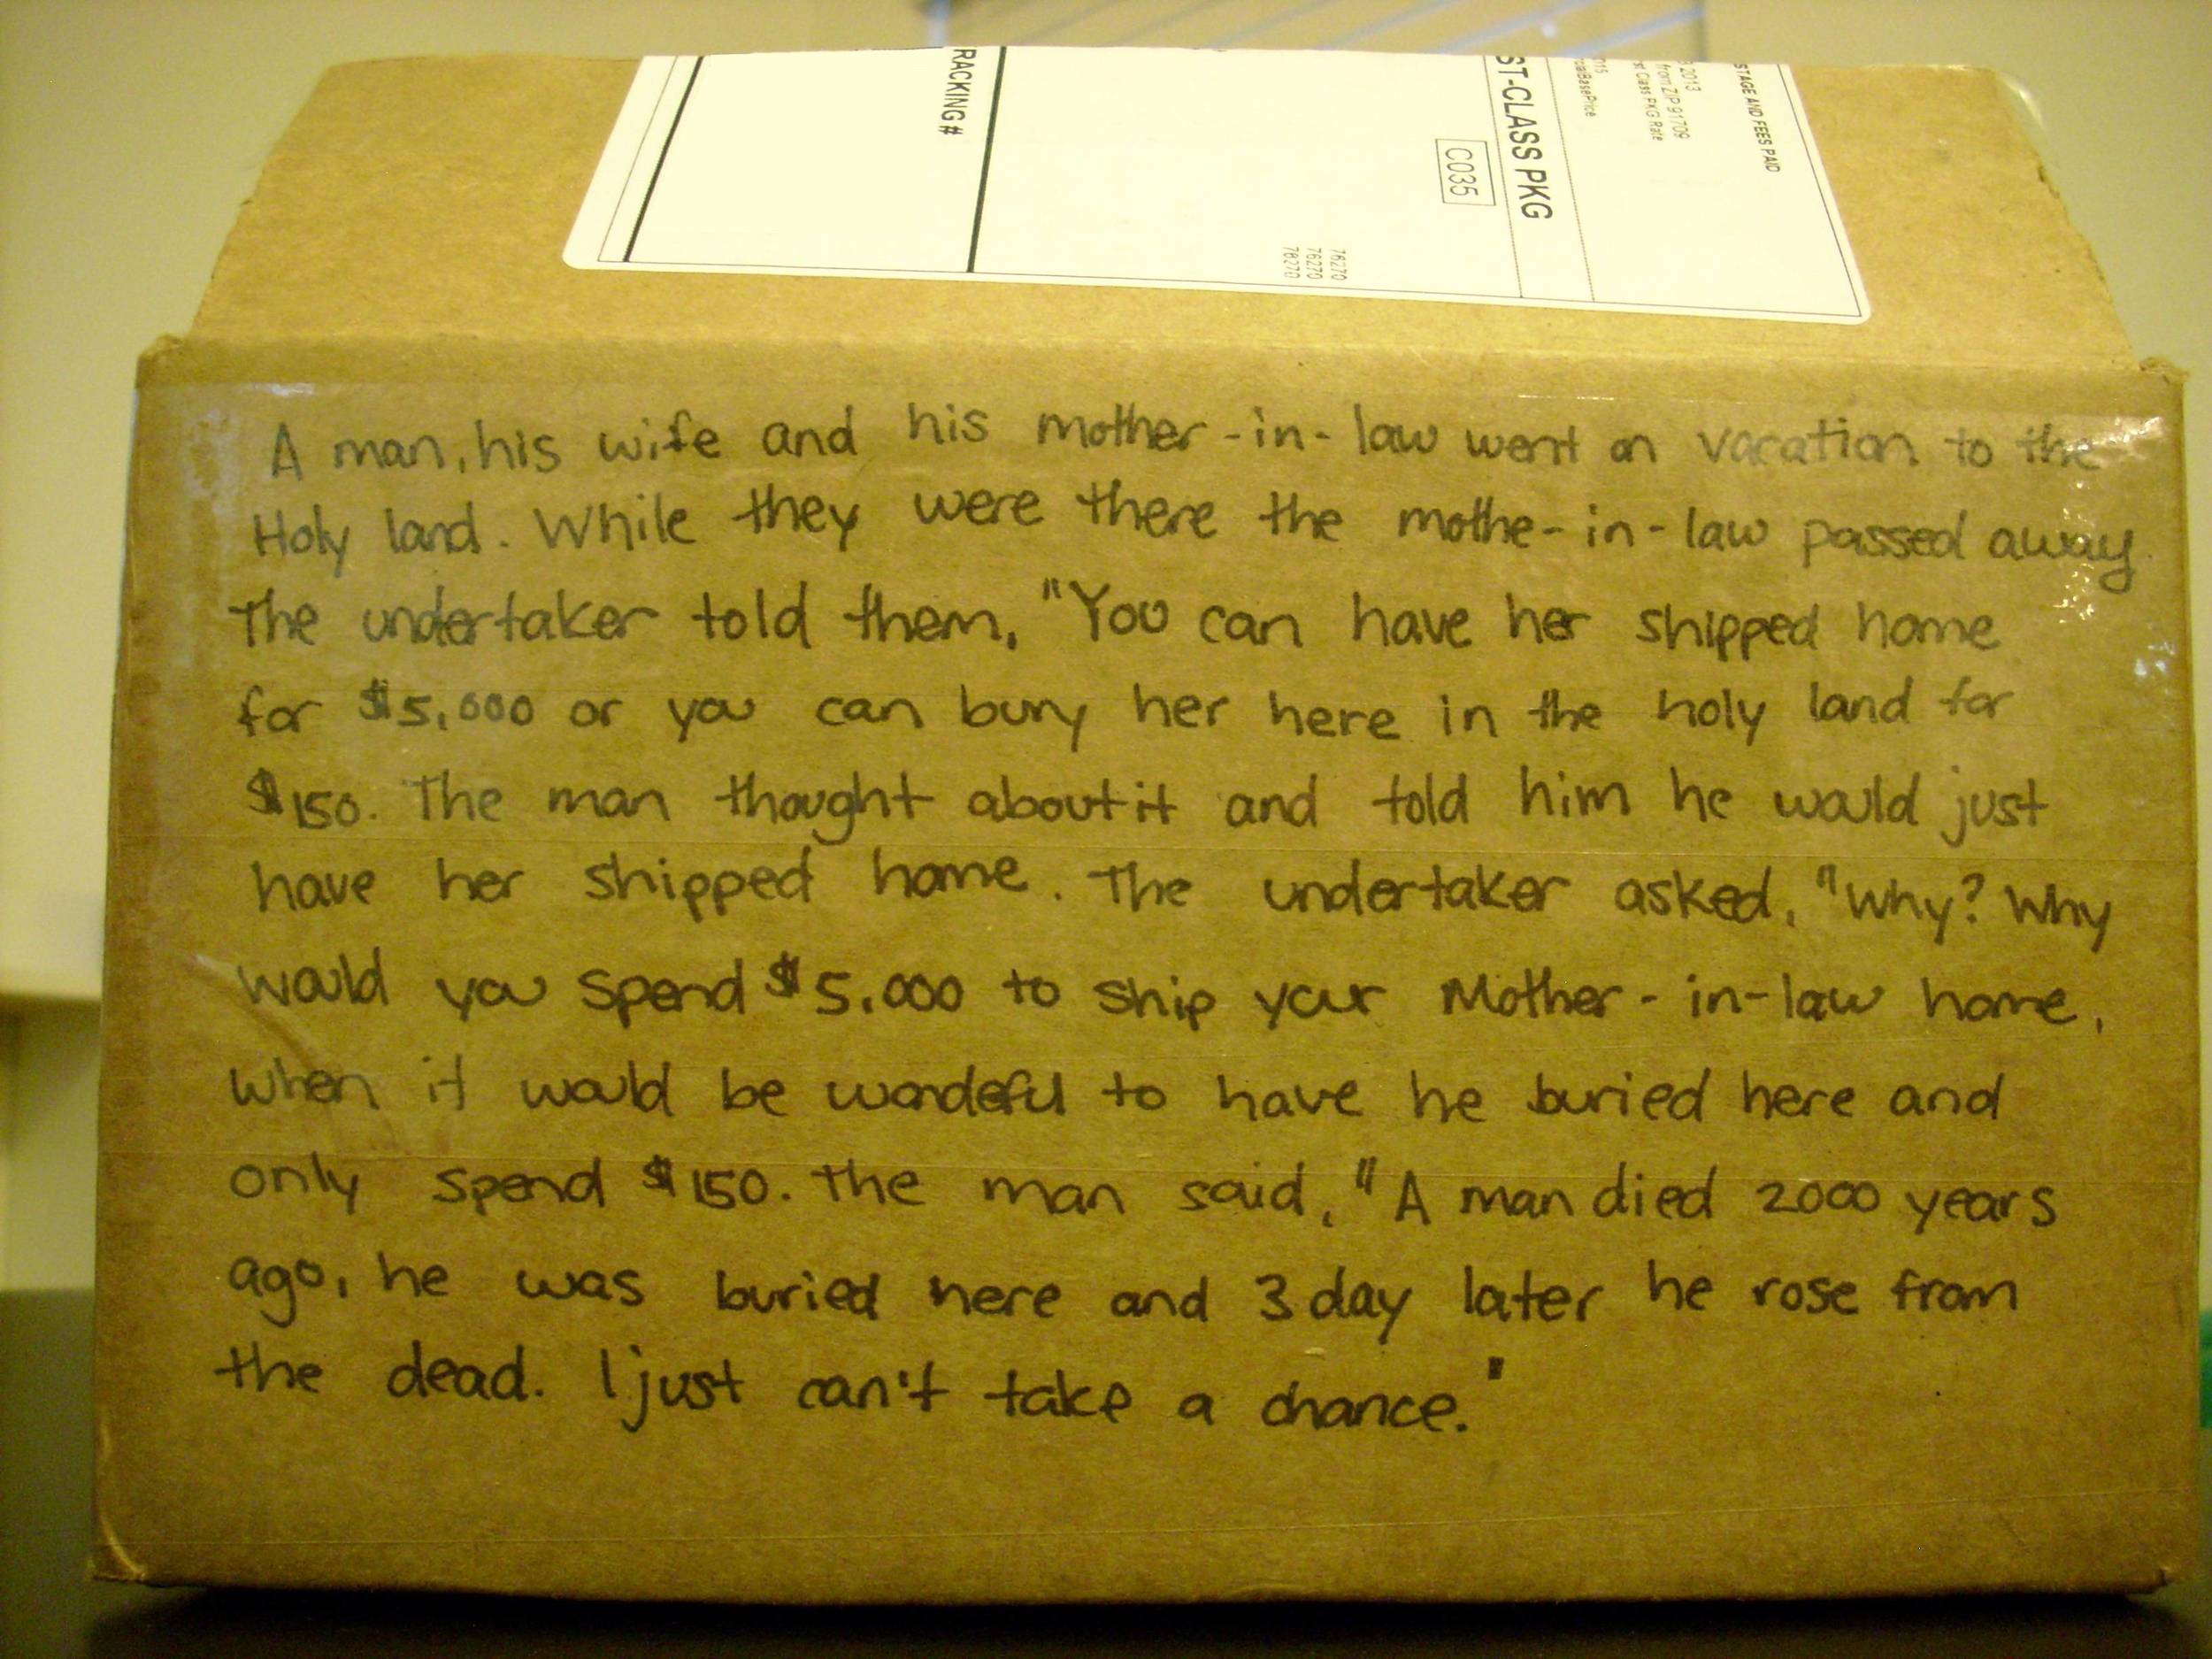 STAGE AND FEES PAID
2013
from ZIP 91709
st Class PKG Rate
015
cialBasePrice
ST-CLASS PKG
C035
76270
76270
76270
RACKING #
A man, his wife and his mother-in-law went on vacation to the
Holy land. While they were there the mothe-in-law passed away.
The undertaker told them, "You can have her shipped home
for $5,000 or you can bury her here in the holy land for
$150. The man thought about it and told him he would just
have her shipped home. The undertaker asked, "Why? Why
would you spend $5,000 to ship your Mother-in-law home,
when it would be wondeful to have he buried here and
only spend $150. The man said, "A man died 2000 years
ago, he was buried here and 3 day later he rose from
the dead. I just can't take a chance."